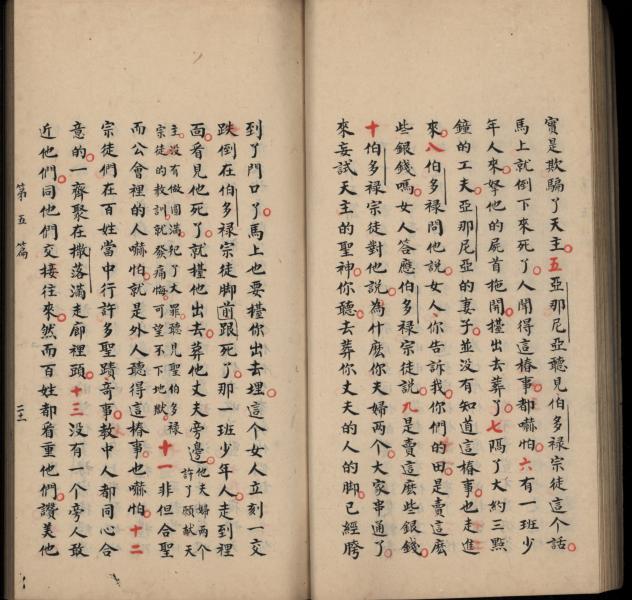 實是欺騙了天主五亞那尼亞聽見伯多祿宗徒這个話
馬上就倒下來死了人聞得這樁事都嚇怕六有一班少
年人來拏他的屍首拖開擡出去葬了七隔了大約三點
鐘的工夫亞那尼亞的妻子並没有知道這樁事也走進
來八伯多祿問他説女人你告訴我你們的田是賣這麽
些銀錢嗎女人答應伯多祿宗徒説九是賣這麽些銀錢
十伯多祿宗徒對他説為什麽你夫婦两个大家串通了
來妄試天主的聖神你聽去葬你丈夫的人的脚已經胯
到了門口了馬上也要擡你出去埋這个女人立刻一交
跌倒在伯多祿宗徒脚前跟死了那一班少年人走到裡
面看見他死了就擡他出去葬他丈夫旁邊他夫婦两个許了願献天
主没有做圓滿犯了大罪聽見聖伯多祿宗徒的教訓就發痛悔可望不下地獄十一非但合聖
而公會裡的人嚇怕就是外人聽得這樁事也嚇怕十二
宗徒們在百姓當中行許多聖蹟奇事教中人都同心合
意的一齊聚在撒落滿走廊裡頭十三没有一个旁人敢
近他們同他們交接往來然而百姓都看重他們讚美他
第五篇